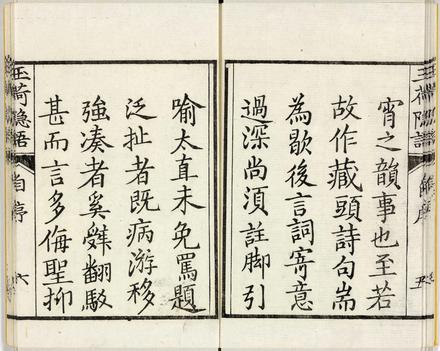 宵之韻事也至若
故作藏頭詩句耑
為歇後言詞寄意
過深尚須註脚引
喻太直未免罵題
泛扯者既病游移
強湊者奚辭翻駁
甚而言多侮聖抑
玉荷隱語
自序
六